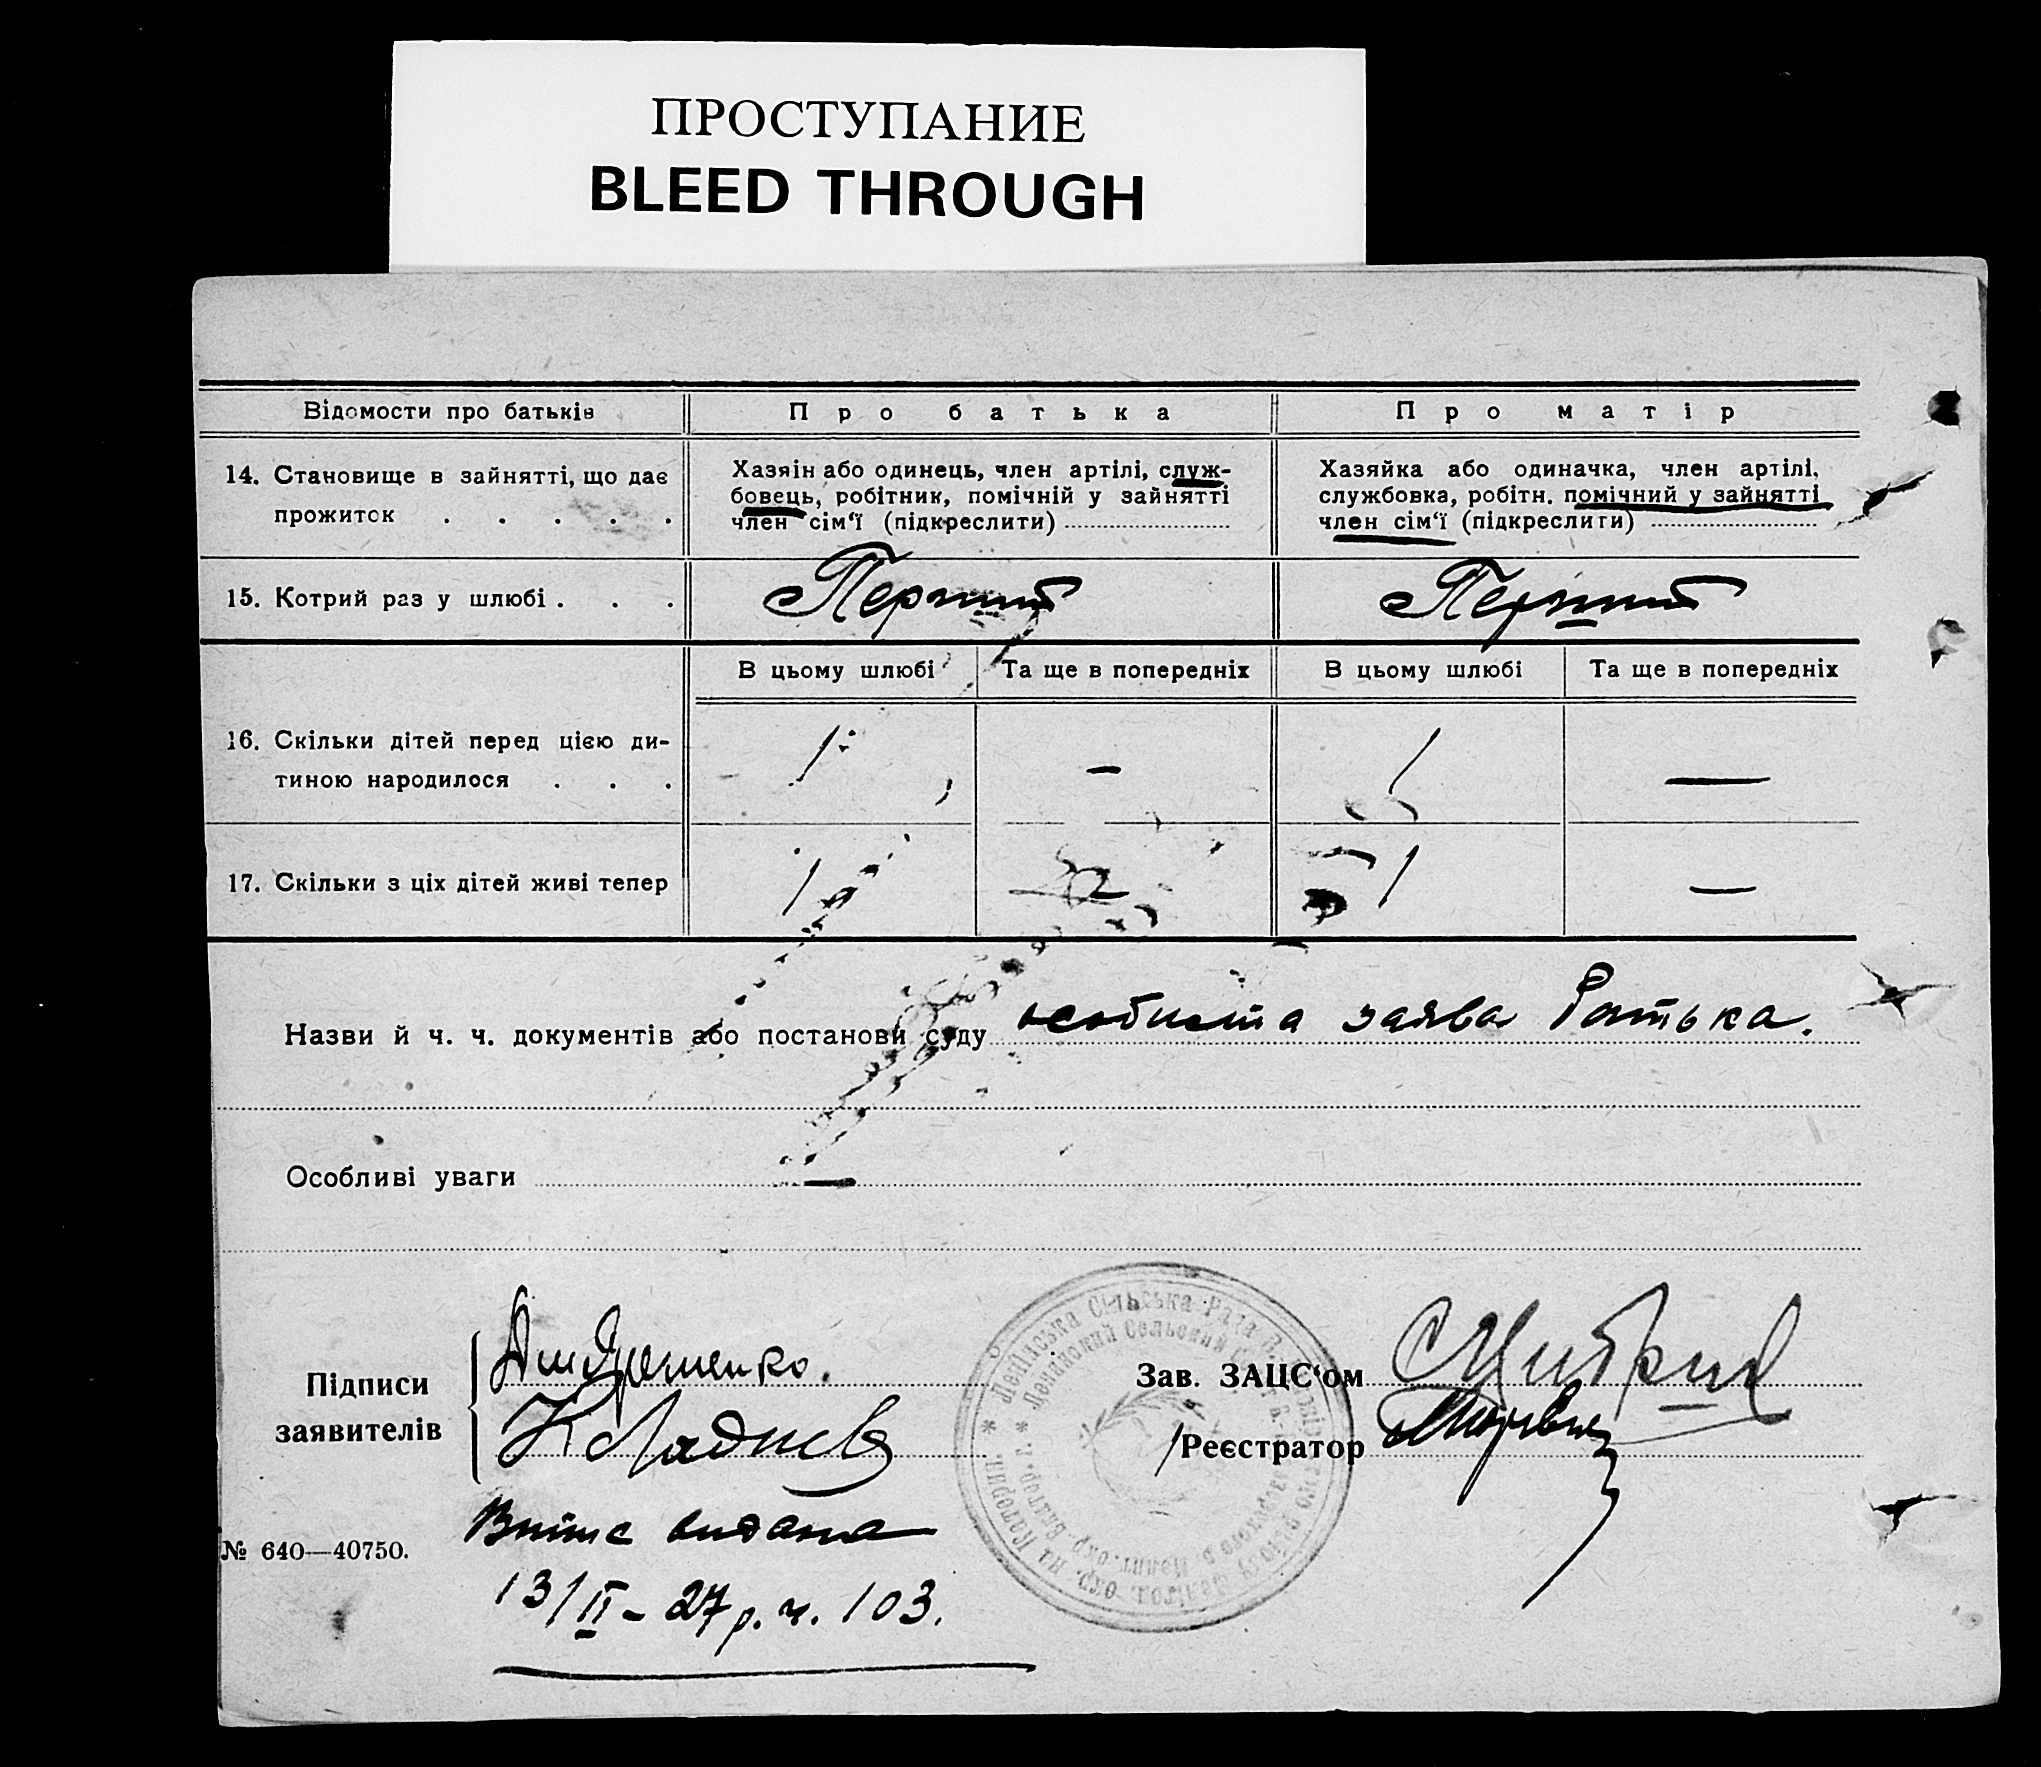 ПРОСТУПАНИЕ
BLEED THROUGH
Відомости про батьків Про батька Про матір
14. Становище в зайнятті, що дає прожиток . . . . .
Хазяін або одинець, член артілі, служ-
бовець, робітник, помічній у зайнятті
член сім‘ї (підкреслити)
Хазяйка або одиначка, член артілі,
службовка, робітн. помічний у зайнятті
член сім‘ї (підкреслити)
15. Котрий раз у шлюбі . . . Перший Перший
В цьому шлюбі Та ще в попередніх В цьому шлюбі Та ще в попередніх
16. Скільки дітей перед цією ди-
тиною народилося . . . 1 – 1 —
17. Скільки з ціх дітей живі тепер 1 1 —
Назви й ч. ч. документів або постанови суду особиста заява батька.
Особливі уваги —
Підписи
заявителів
Зав. ЗАЦС‘ом
Реєстратор
Ленінська Сільська Рада
Ленинский Сельский
№ 640—40750.
видана
13/II – 27 р. ч. 103.